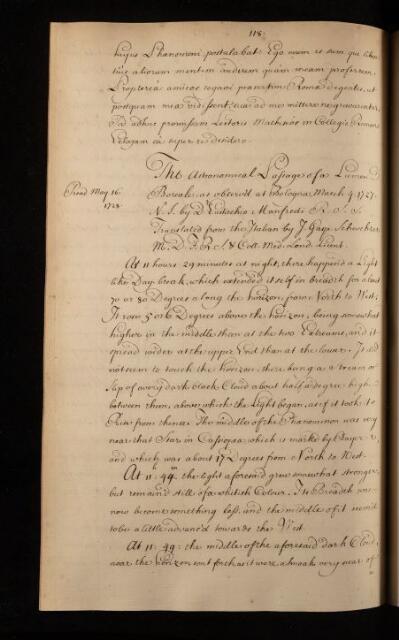 118.
hujus Phænomeni postulabat. Ego enim is sum qui libentius aliorum mentem audeam quam meam proferam.
Propterea amicos rogavi præsertim Romæ degentes, ut
postquam mea vidissent, sua ad me mittere ne gravarentur,
Sed adhuc promissam Lectoris Mathesios in Collegio Romano
The Astronomical Passage of a
Read May 16
1728
Boreale as observ'd at Bologna March 4. 1727.
N. S. by D. Eustachio Manfredi R. S. S.
Translated from the Italian by J. Gasp. Scheuchzer
M. D. F. R. S. & Coll. Med. Lond. Licent.
At 11 hours 29 minutes at night, there happen'd a Light
like Day break, which extended itself in breadth for about
70 or 80 Degrees along the horizon, from North to West;
It rose 5 or 6 Degrees above the horizon, being somewhat
higher in the middle than at the two Extreams, and it
spread wider at the upper End than at the lower. It did
not seem to touch the horizon, there being a stream or
slip of a very dark black Cloud about half a degree high
between them, above which the Light began, as if it took its
Rise from thence. The middle of the Phænomenon was very
near that Star in Cassiopæa which is marked by Bayer
and which was about 17 Degrees from North to West.
At 11: 44 the light aforesaid grew somewhat stronger,
but remain'd still of a whitish Colour. Its Breadth was
now become something less, and the middle of it seem'd
to be a little advanc'd towards the West.
At 11: 49: the middle of the aforesaid dark Cloud
near the horizon sent forth as it were a smoak very near of